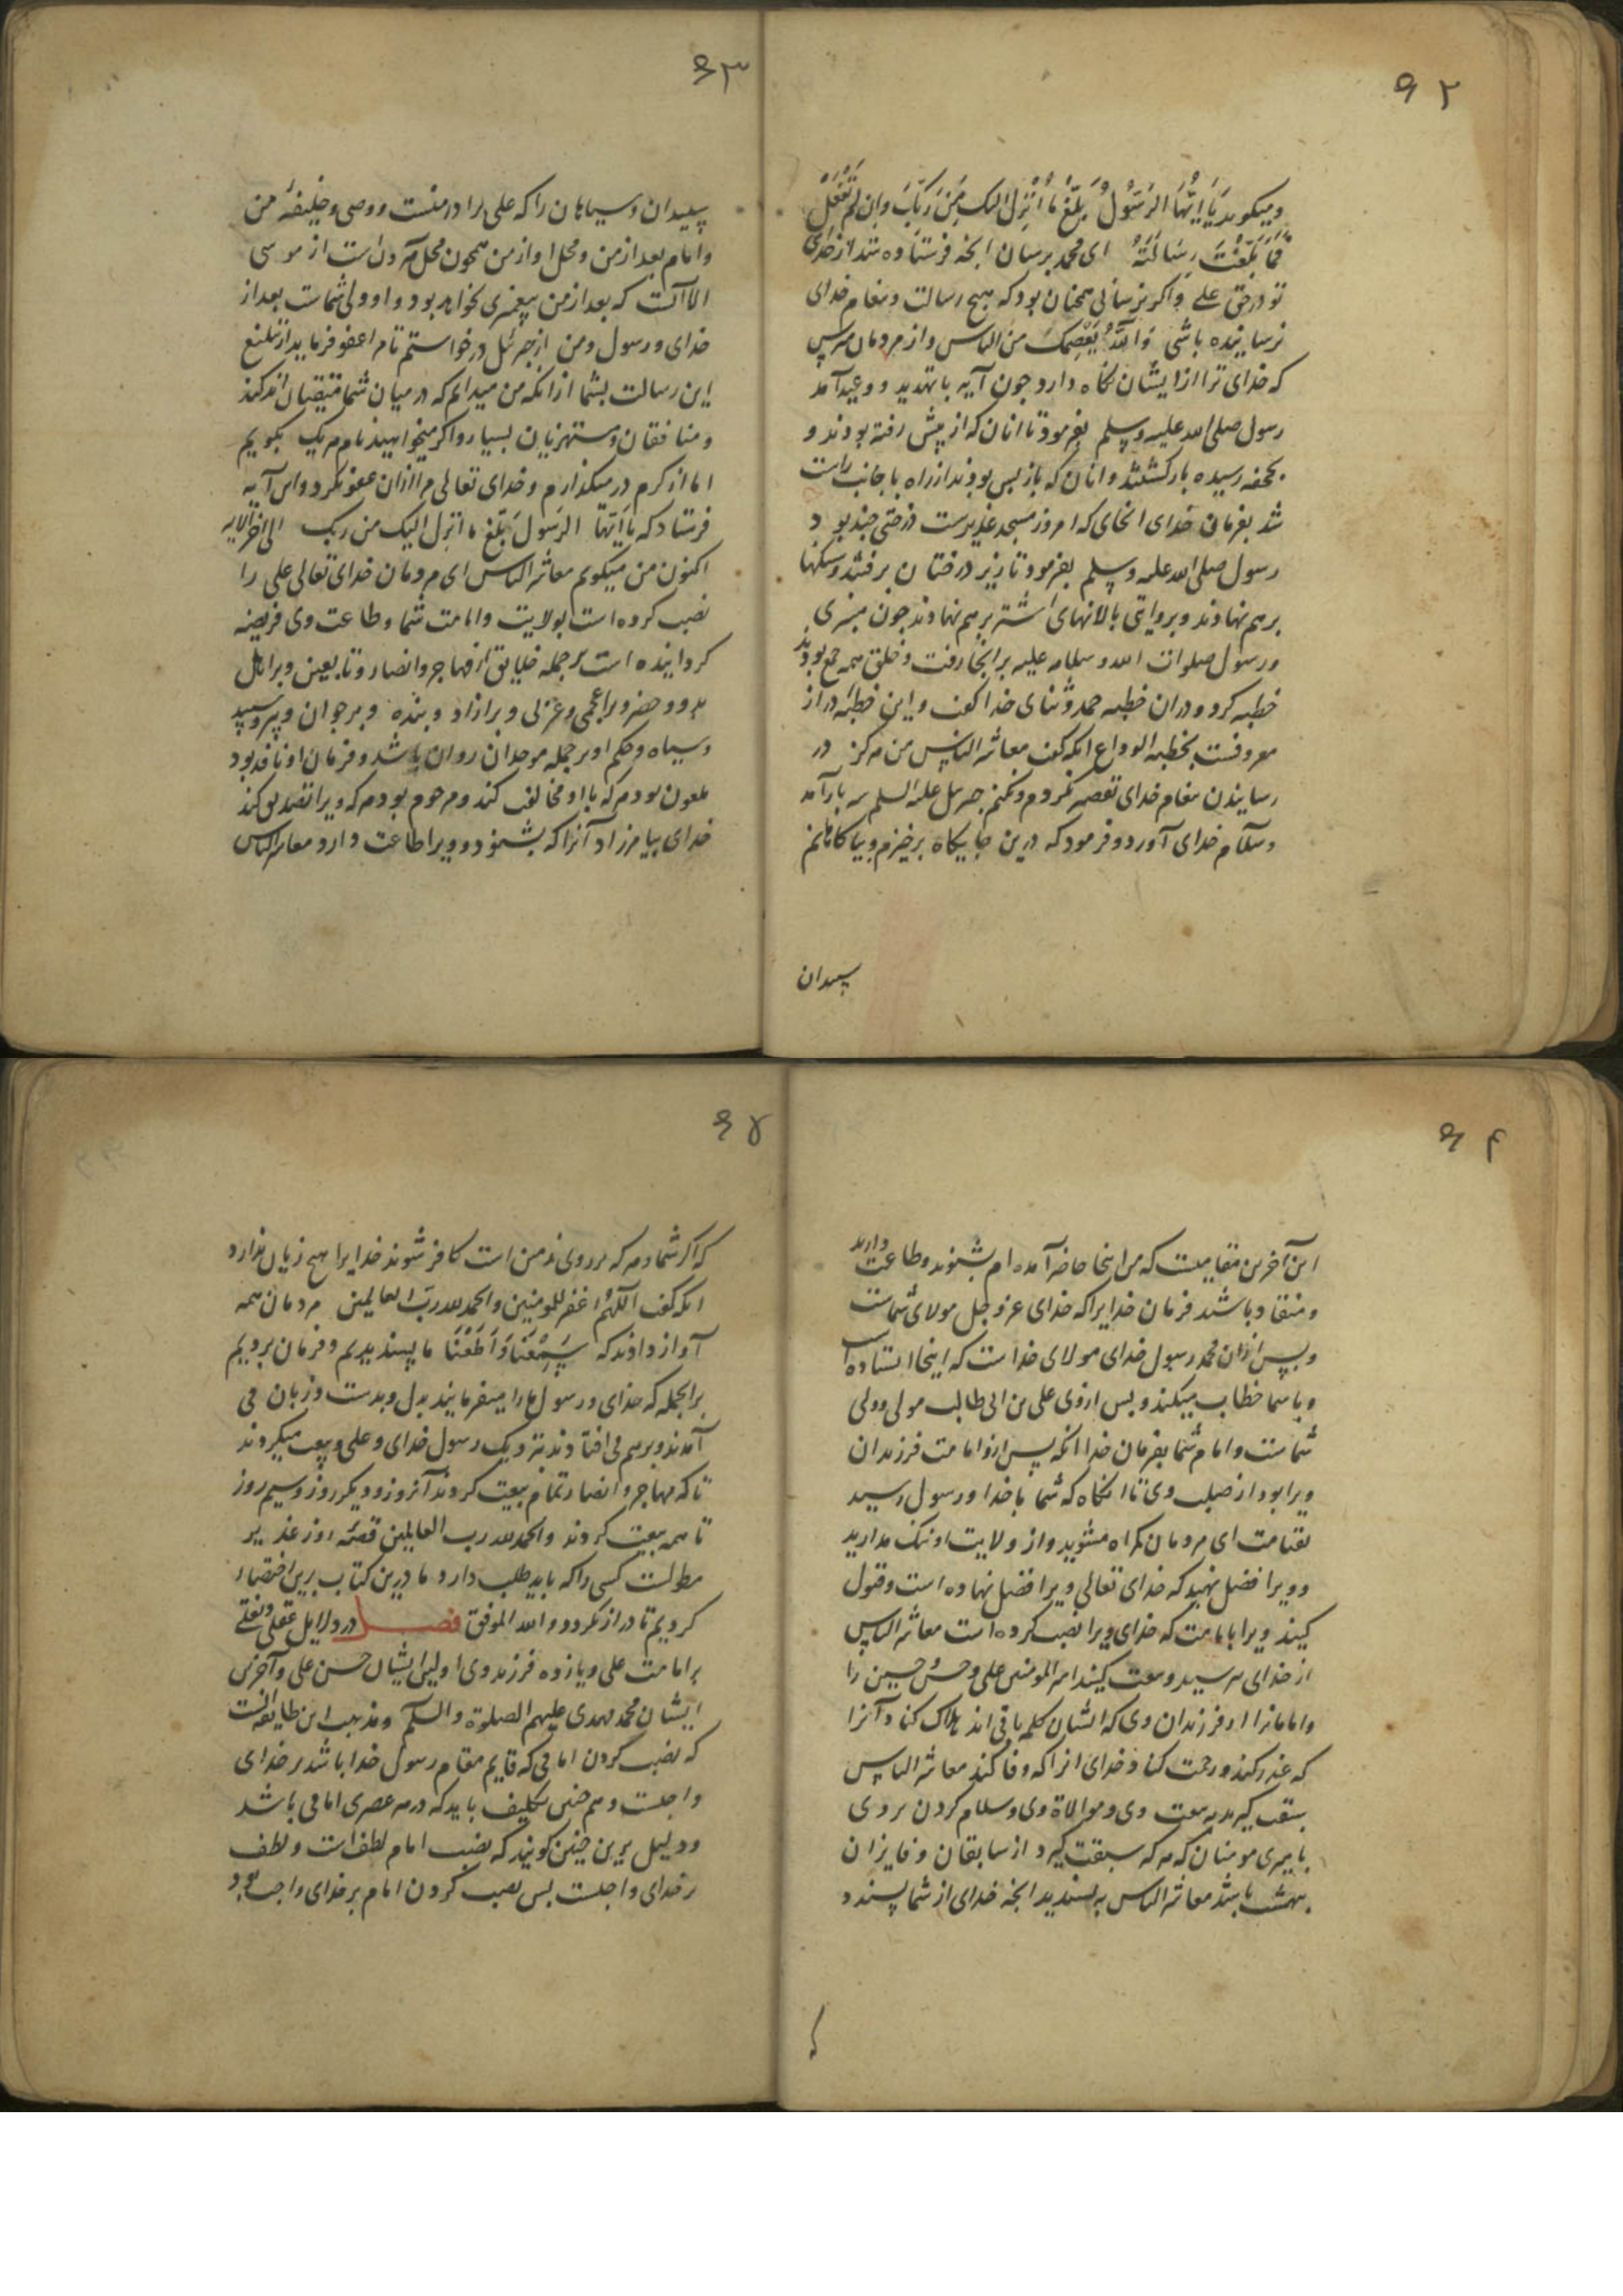 ۶۲
ومیکوید یَا اَیُّهَا الرَسُولُ بَلِّغْ مٰا اُنْزِلَ الیک مِنْ رَبِّکَ وَاِن لَمْ تَفْعَلْ
فَمٰا بَلَّغْتَ رِسَالَتَهُ ای محمد برسان انجه فرستاده شد از خدای
تو در حق علی و اکر نرسانی همجنان بود که هیج رسالت و بیغام خدای
نرسانیده باشی وَاللَّهُ یَعْصِمُکَ مِنَ الناس و از مردمان مترس
که خدای ترا از ایشان نکاه دارد جون آیه با تهدید و وعید آمد
رسول صلی الله علیه وسلم بفرمود تا انان که از پیش رفته بودند و
بجحفه رسیده باز کشتند و انان که باز پس بودند از راه با جانب راست
شد بفرمان خدای انجای که امروز مسجد غدیرست درختی جند بود
رسول صلی الله علیه وسلم بفرمود تا زیر درختان برفتند و سنکها
برهم نهادند و بروایتی بالانهای اشتر برهم نهادند جون منبری
و رسول صلوات الله و سلامه علیه بر انجا رفت و خلق همه جمع بودند
خطبه کرد و دران خطبه حمد و ثنای خدا کفت و این خطبهٔ دراز
معروفست بخطبه الوداع انکه کفت معاشر الناس من هرکز در
رسانیدن بیغام خدای تقصیر نکردم و نکنم جبرئیل علیه السلم سه بار آمد
و سلام خدای آورد و فرمود که درین جایکاه برخیزم و بیاکاهانم
سپیدان
۶۳
سپیدان و سیاهان را که علی برادر منست و وصی و خلیفهٔ من
و امام بعد از من و محل او از من همجون محل هرون است از موسی
الا آنست که بعد از من پیغمبری نخواهد بود و او ولی شماست بعد از
خدای و رسول و من از جبرئیل درخواستم تا مرا عفو فرماید از تبلیغ
این رسالت بشما از انکه من میدانم که در میان شما متقیان اندکند
و منافقان و مستهزیان بسیار و اکر میخواهید نام هر یک بکویم
اما از کرم در میکذارم و خدای تعالی مرا ازان عفو نکرد و این آیه
فرستاد که یَا اَیّهَا الرَسُولُ بَلِّغ ما اُنزِل الیک من ربک الی اخر الایه
اکنون من میکویم معاشر الناس ای مردمان خدای تعالی علی را
نصب کرده است بولایت و امامت شما و طاعت وی فریضه
کردانیده است بر جمله خلایق از مهاجر و انصار و تابعین و بر اهل
بدو و حضر و بر اعجمی و عربی و بر ازاد و بنده و بر جوان و پیر و سپید
و سیاه و حکم او بر جمله موحدان روان باشد و فرمان او نافذ بود
ملعون بود هر که با او مخالفت کند و مرحوم بود هر که ویرا تصدیق کند
خدای بیامرزاد آنرا که بشنود و ویرا طاعت دارد معاشر الناس
۶۴
این آخرین مقامیست که من اینجا حاضر آمده ام بشنوید و طاعت دارید
و منقاد باشید فرمان خدایرا که خدای عز و جل مولای شماست
و پس ازان محمد رسول خدای مولای خداست که اینجا استاده است
و با شما خطاب میکند و بس از وی علی بن ابی طالب مولی و ولی
شماست و امام شما بفرمان خدا انکه پس ازو امامت فرزندان
ویرا بود از صلب وی تا انکاه که شما با خدا و رسول رسید
بقیامت ای مردمان کمراه مشوید و از ولایت او ننک مدارید
و ویرا فضل نهید که خدای تعالی ویرا فضل نهاده است و قبول
کیند ویرا بامامت که خدای ویرا نصب کرده است معاشر الناس
از خدای بترسید و بیعت کیند امیر المومنین علی و حسن و حسین را
و امامانرا از فرزندان وی که ایشان کلمه باقی اند هلاک کناد آنرا
که غدر کند و رحمت کناد خدای انرا که وفا کند معاشر الناس
سبقت کیرید به بیعت وی و موالاة وی و سلام کردن بر وی
بامیری مومنان که هر که سبقت کیرد از سابقان و فایزان
بهشت باشد معاشر الناس به پسندید انجه خدای از شما پسندد
که
۶۵
که اکر شما و هر که بر روی زمین است کافر شوند خدایرا هیج زیان ندارد
انکه کفت اللّهُمَّ اغفر للمومنین والحمد لله ربّ العالمین مردمان همه
آواز دادند که سَمِعْنَا وَ اَطَعْنَا ما پسندیدیم و فرمان بردیم
بر انجمله که خدای و رسول ما را میفرمایند بدل و بدست و زبان می
آمدند و برهم می افتادند نزدیک رسول خدای و علی و بیعت میکردند
تا که مهاجر و انصار تمام بیعت کردند آنروز و دیکر روز و سیم روز
تا همه بیعت کردند والحمد لله رب العالمین قصّه روز غدیر
مطولست کسی را که باید طلب دارد ما درین کتاب برین اختصار
کردیم تا دراز نکردد و الله الموفق فصل در دلایل عقلی و نقلی
بر امامت علی و یازده فرزند وی اولین ایشان حسن علی و آخرین
ایشان محمد مهدی علیهم الصلوة و السلم و مذهب این طایفه انست
که نصب کردن امامی که قایم مقام رسول خدا باشد بر خدای
واجبست و هم جنین تکلیف باید که در هر عصری امامی باشد
و دلیل برین جنین کویند که نصب امام لطفست و لطف
بر خدای واجبست بس نصب کردن امام بر خدای واجب بود